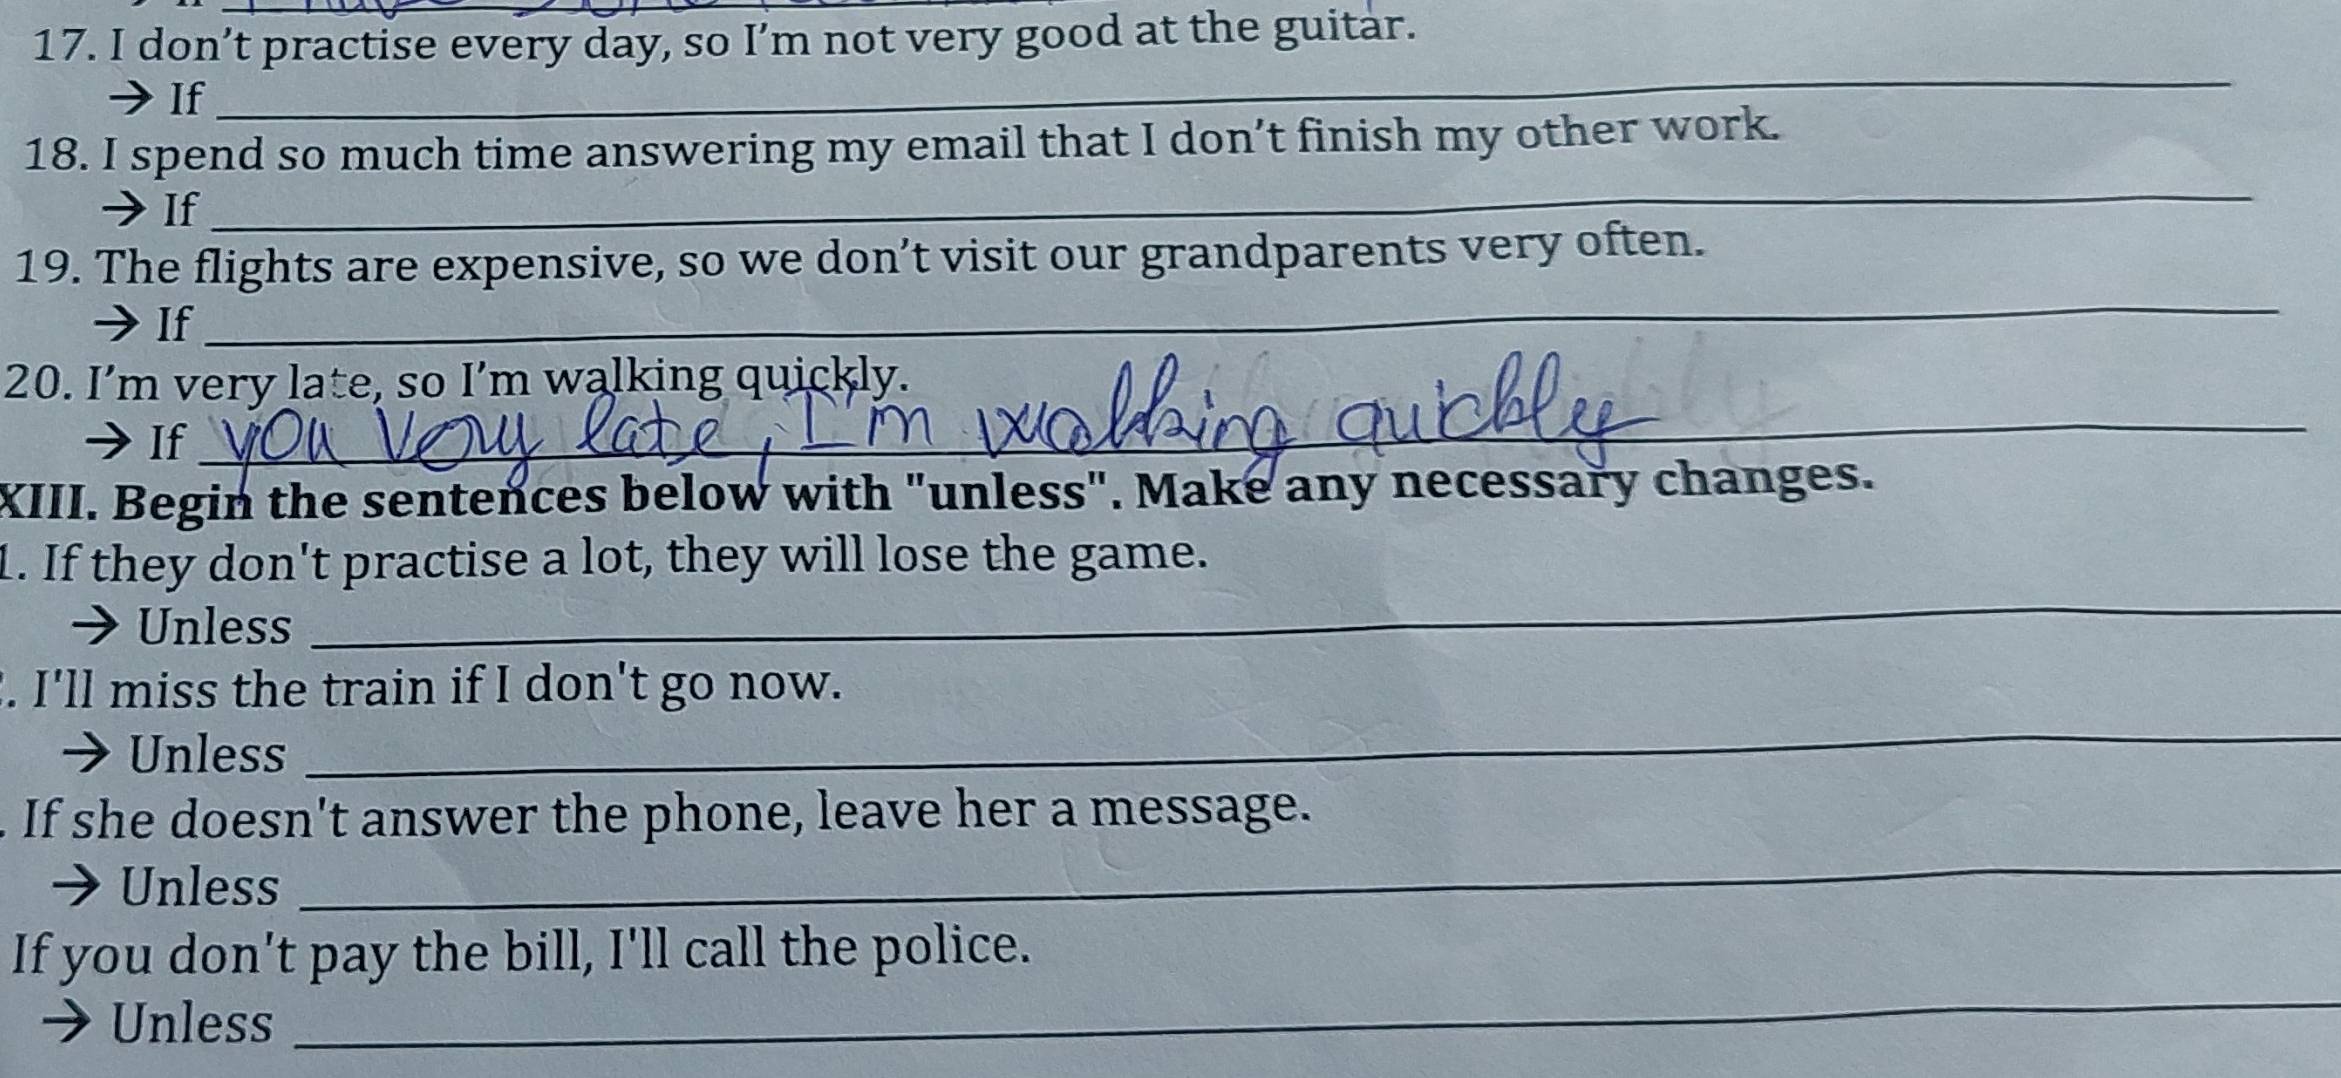 17. I don't practise every day, so I'm not very good at the guitar.
→ If
18. I spend so much time answering my email that I don't finish my other work.
→ If
19. The flights are expensive, so we don't visit our grandparents very often.
→ If
20. I'm very late, so I'm walking quickly.
→ If you very late, I'm walking quickly
XIII. Begin the sentences below with "unless". Make any necessary changes.
1. If they don't practise a lot, they will lose the game.
→ Unless
. I'll miss the train if I don't go now.
→ Unless
. If she doesn't answer the phone, leave her a message.
→ Unless
If you don't pay the bill, I'll call the police.
→ Unless